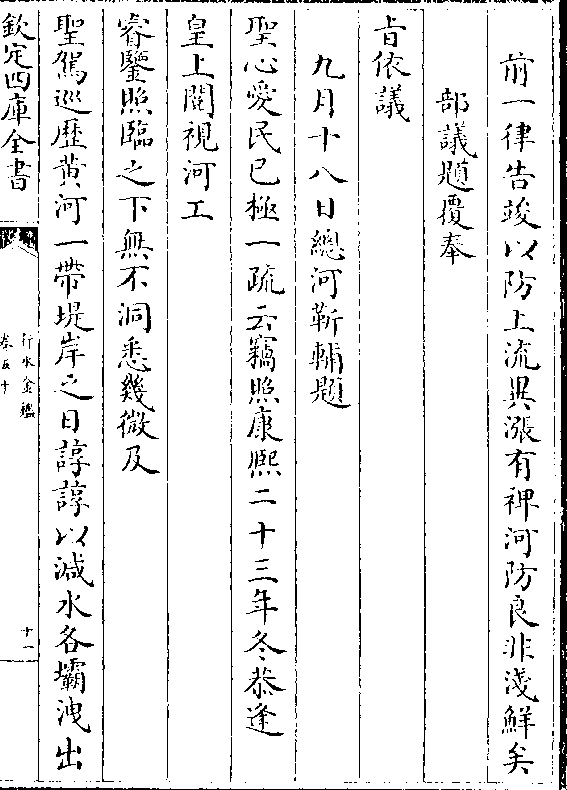 前一律告竣以防上流異漲有裨河防良非淺鮮矣
部議題覆奉
㫖依議
九月十八日總河靳輔題
聖心愛民已極一疏云竊照康熙二十三年冬恭逢
皇上閱視河工
睿鑒照臨之下無不洞悉幾微及
聖駕巡歷黄河一帶堤岸之日諄諄以減水各壩洩出
欽定四庫全書
行水金鑑
卷五十
十一